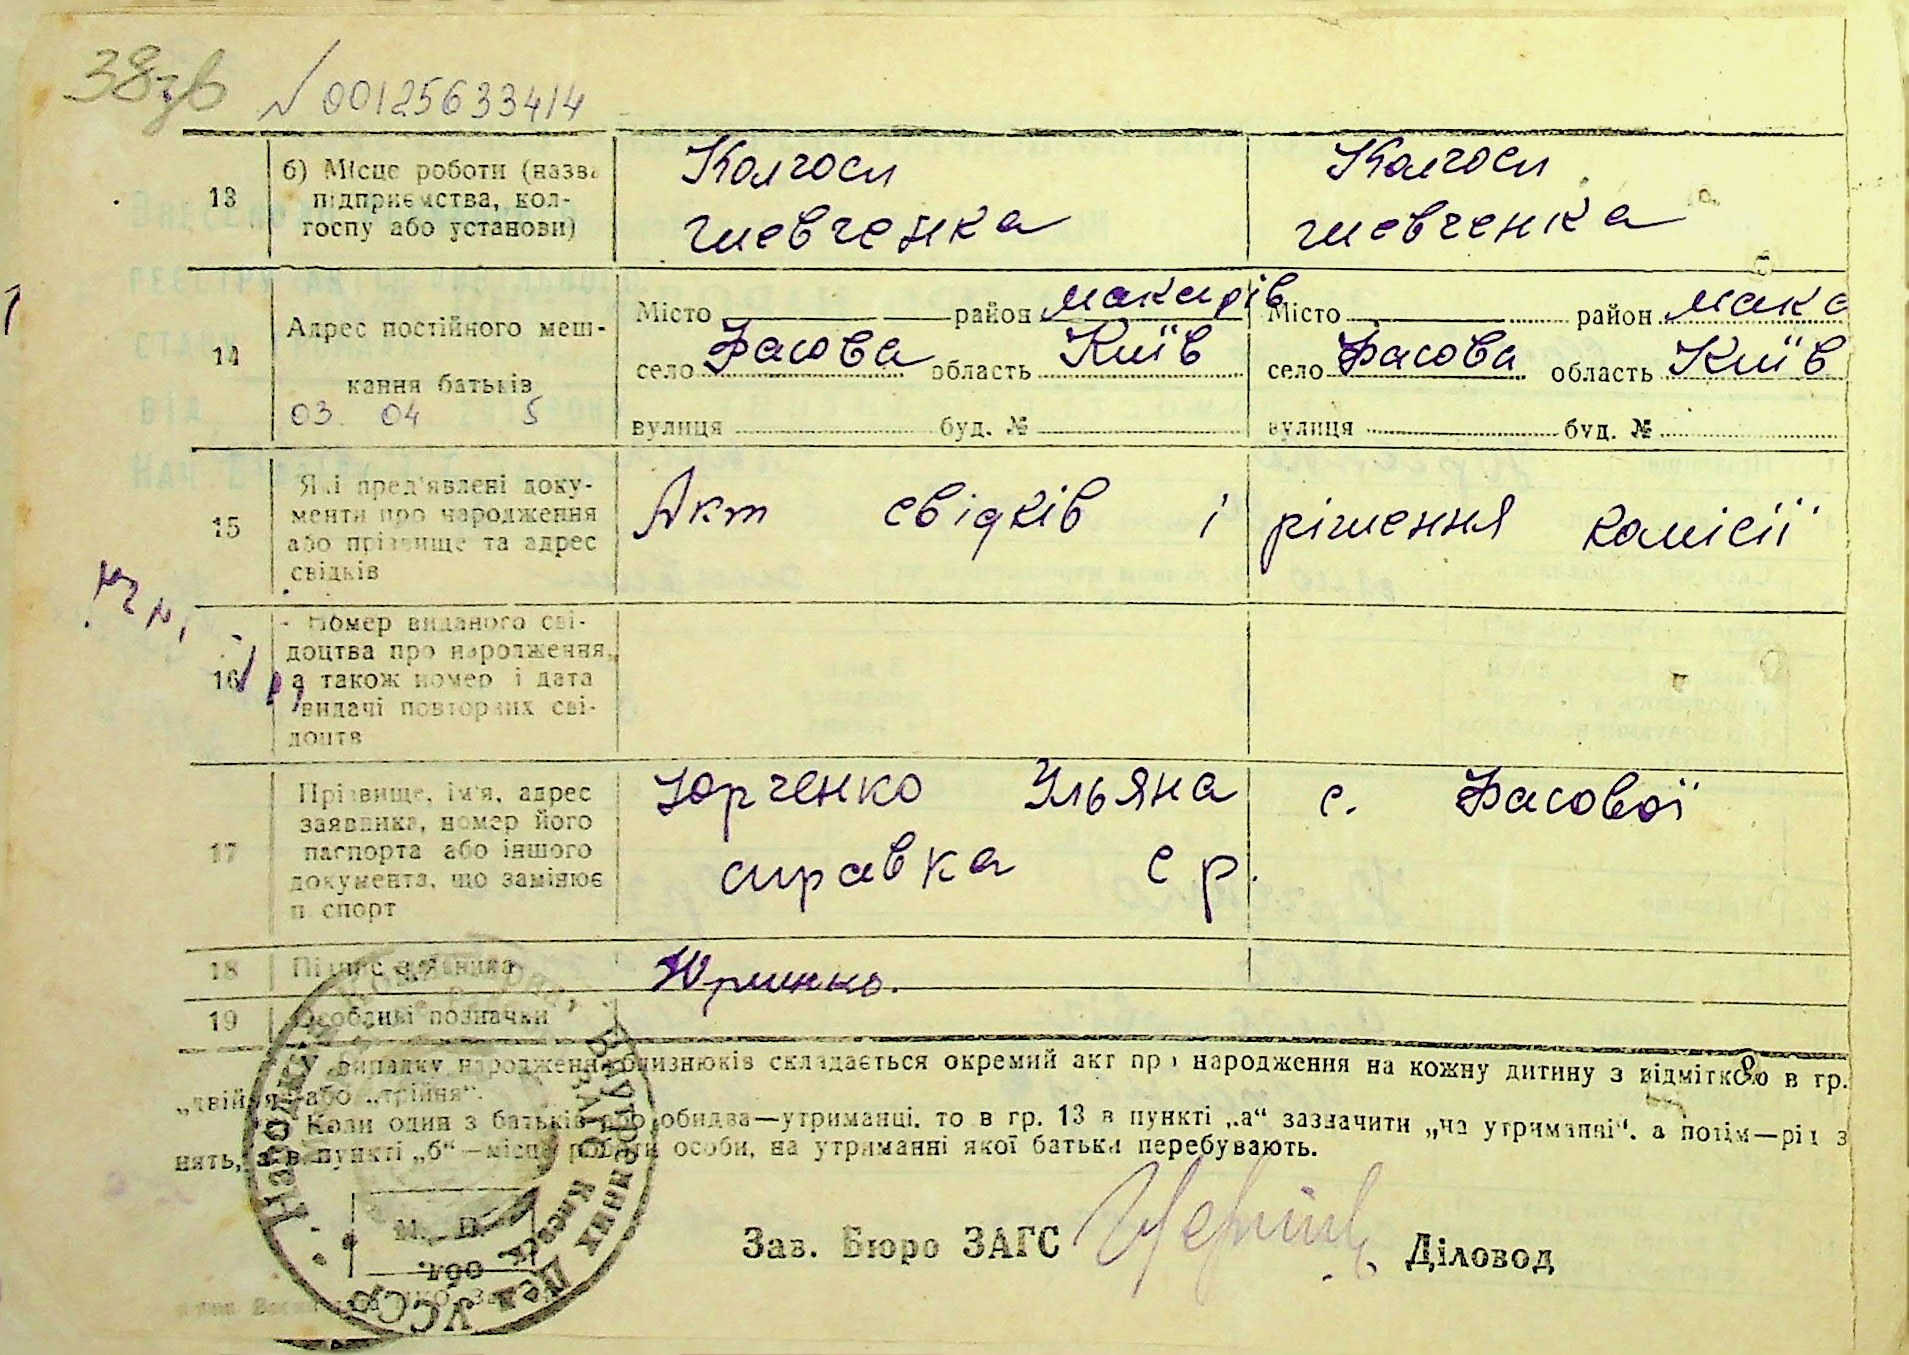 38зв № 00125633414
13
б) Місце роботи (назва
підприємства, кол-
госпу або установи)
Колгосп
шевченка
Колгосп
шевченка
14
Адрес постійного меш-
кання батьків
03 04 5
Місто район макарів
село Фасова область Київ
вулиця буд. №
Місто район мака
село Фасова область Київ
вулиця буд. №
15
Які пред'явлені доку-
менти про народження
або прізвище та адрес
свідків
Акт свідків і рішення комісії
16
Номер виданого сві-
доцтва про народження,
а також номер і дата
видачі повторних сві-
доцтв
17
Прізвище, ім'я, адрес
заявника, номер його
паспорта або іншого
документа, що замінює
п спорт
Юрченко Ульяна с. Фасової
справка с р.
18
Підпис заявника
19
Особливі позначки
випадку народження близнюків складається окремий акт про народження на кожну дитину з відміткою в гр.
„двійня" або „трійня".
Коли один з батьків або обидва—утриманці, то в гр. 13 в пункті „а" зазначити „на утриманні", а потім—рід з
нять, а в пункті „б"—місце роботи особи, на утриманні якої батьки перебувають.
Зав. Бюро ЗАГС Діловод
М. П.
обл.
УССР